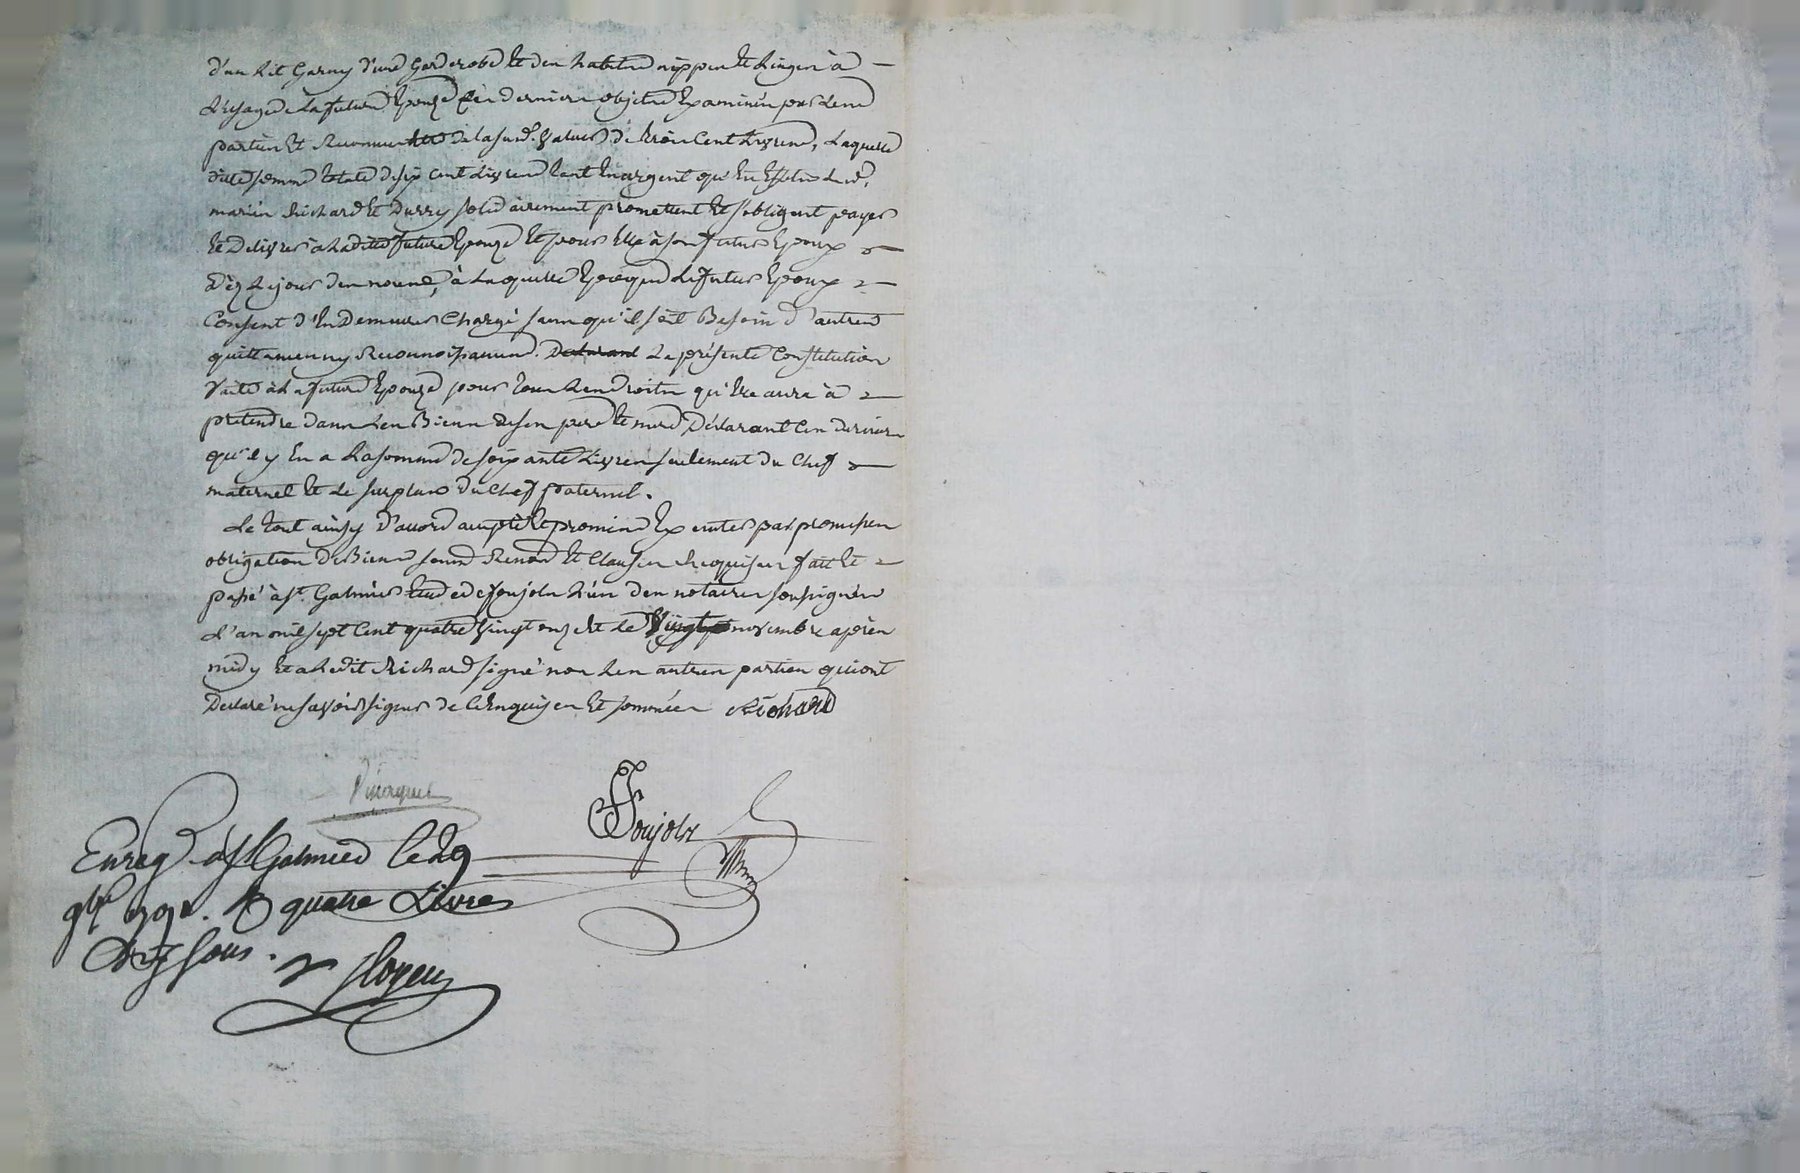 d'un Lit Garny d'une Garderobe et des habitse nippes et Linges à —
L'usage de La future Epouze ces derniers objets Examinés par Les
parties et Reconnus de la susd. valeur de trois Cent Livres, Laquelle
ditte somme totale de six cent Livres tant En argent qu'En Effets Lesd.
mariés Richard et Durry solidairement promettent et s'obligent payer
et Delivrer à Ladite future Epouze et pour Elle à son futur Epoux
dès Le jour des noces, à Laquelle Epoque Le futur Epoux
Consent d'En Demeurer Chargé sans qu'il soit Besoin d'autres
quittances ny Reconnoissances. La présente Constitution
faite à La future Epouze pour tous Les droits qu'Elle aura à
pretendre dans Les Biens de son pere et mere Déclarant Ces derniers
qu'il y En a La somme de soixante Livres seulement du Chef
maternel et Le surplus du Chef paternel.
Le tout ainsy d'accord accepté et promis Executer par promesses
obligation de Biens soums Renon et Clauses Requises fait et
passé à St. Galmier Etude de Jfoujols L'un des notaires soussignés
L'an mil sept Cent quatre vingt onze et Le Vingt novembre après
midy Et a Ledit Richard signé non Les autres parties qui ont
Declaré ne savoir signer de Ce Enquises Et sommées Richard
Foujols
Enreg. à St Galmier le 29
9bre 1791. R quatre Livres
Dix sous.